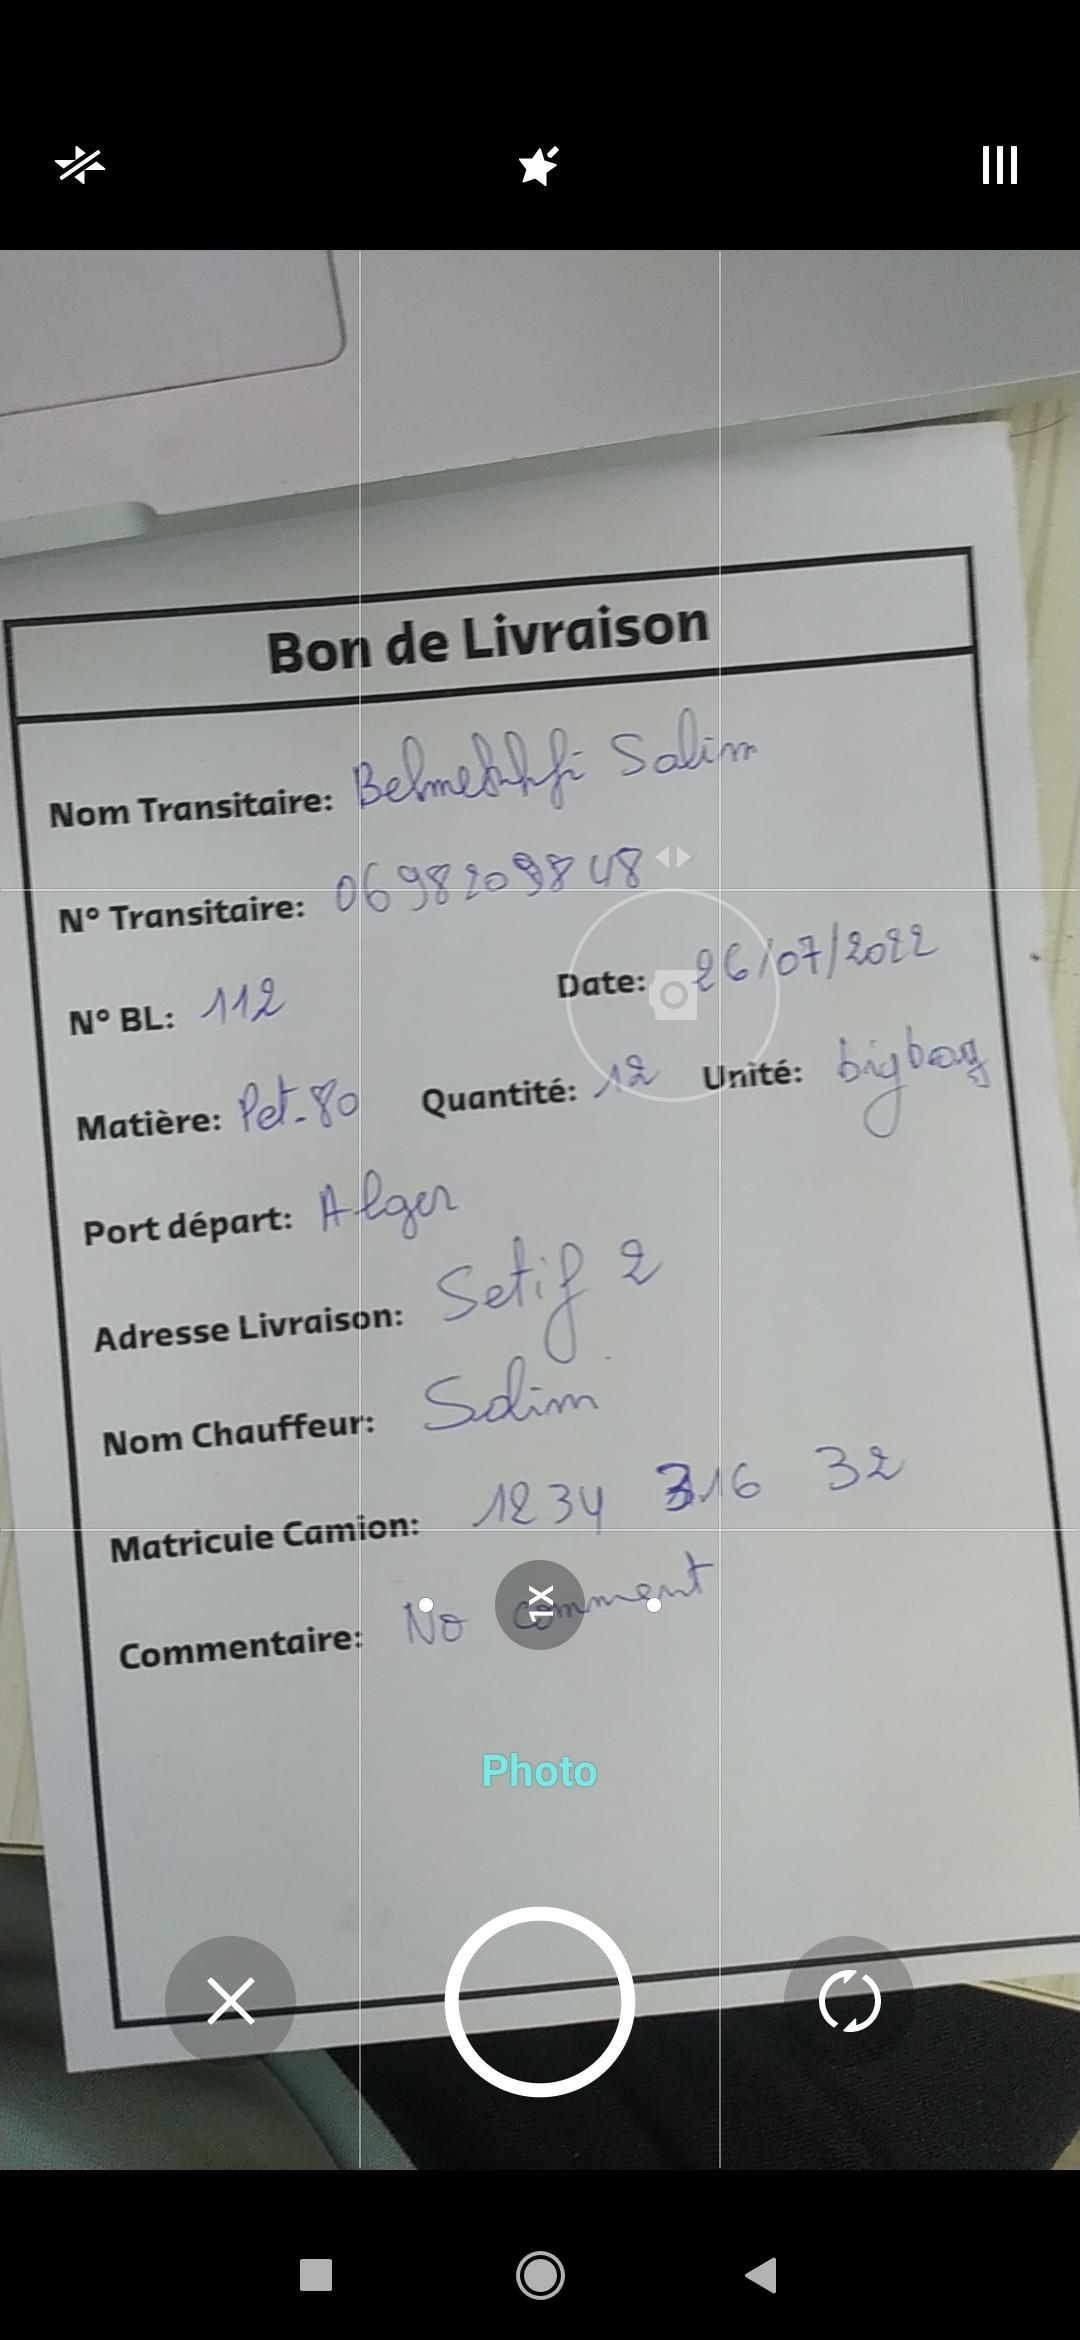 Bon de Livraison
Nom Transitaire: Salim
N° Transitaire: 0698209848
N° BL: 112 Date: 26/07/2022
Matière: Pet-80 Quantité: 12 Unité: bigbag
Port départ: Alger
Adresse Livraison: Setif 2
Nom Chauffeur: Salim
Matricule Camion: 1234 316 32
Commentaire: No comment
1X
Photo